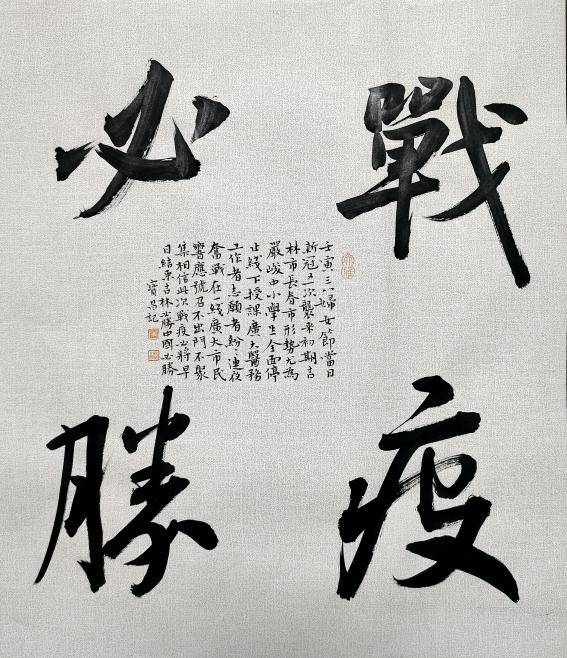 戰疫
必勝
壬寅三八婦女節當日
新冠又一次襲來初期吉
林市長春市形勢尤為
嚴峻中小學生全面停
止线下授課廣大醫務
工作者志願者紛々連夜
奮戰在一线廣大市民
響應號召不出門不聚
集相信此次戰疫必將早
日結束吉林必勝中國必勝
寶昌記